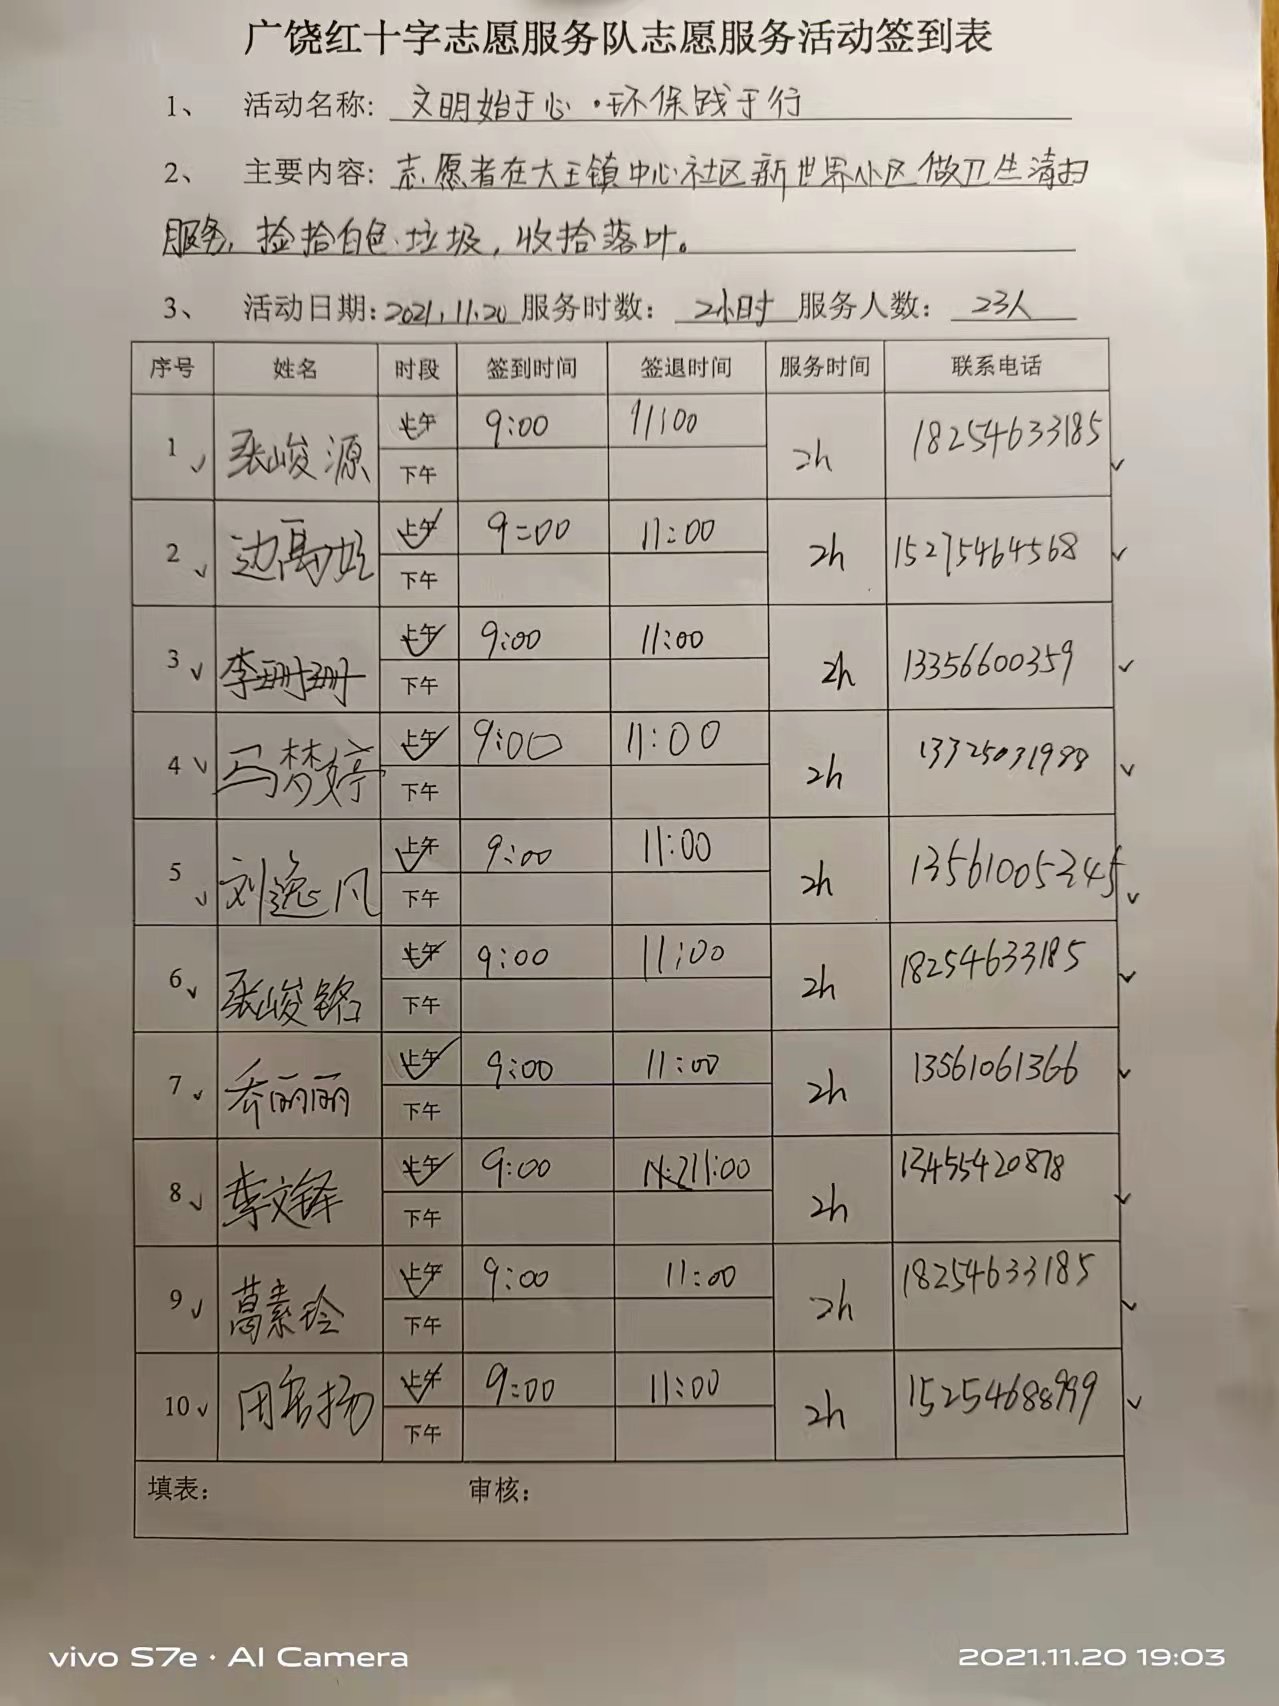 广饶红十字志愿服务队志愿服务活动签到表
1、 活动名称: 文明始于心·环保践于行
2、 主要内容: 志愿者在大王镇中心社区新世界小区做卫生清扫
服务,捡拾白色垃圾,收拾落叶。
3、 活动日期: 2021.11.20 服务时数: 2小时 服务人数: 23人
序号 姓名 时段 签到时间 签退时间 服务时间 联系电话
1 ✓ 张峻源 上午 9:00 11:00 2h 18254633185 ✓
下午
2 ✓ 上午 9:00 11:00 2h 15275464568 ✓
下午
3 ✓ 李珊珊 上午 9:00 11:00 2h 13356600359 ✓
下午
4 ✓ 马梦婷 上午 9:00 11:00 2h 13325031988 ✓
下午
5 ✓ 刘逸凡 上午 9:00 11:00 2h 13561005345 ✓
下午
6 ✓ 张峻铭 上午 9:00 11:00 2h 18254633185 ✓
下午
7 ✓ 乔丽丽 上午 9:00 11:00 2h 13561061366 ✓
下午
8 ✓ 李文铎 上午 9:00 11:00 2h 13455420878 ✓
下午
9 ✓ 葛素玲 上午 9:00 11:00 2h 18254633185 ✓
下午
10 ✓ 上午 9:00 11:00 2h 15254688999 ✓
下午
填表: 审核:
vivo S7e · AI Camera 2021.11.20 19:03